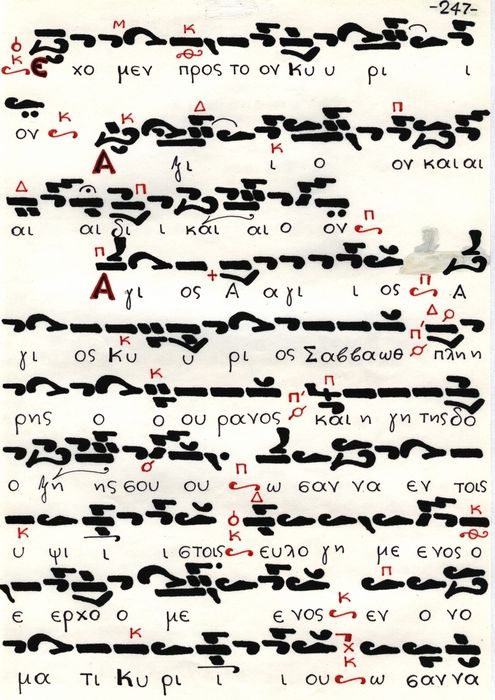 -247-
Ε χο μεν προς το ον Κυ υ ρι ι
ον
Α γι ι ο ον και αι
αι αι δι ι και αι ο ον
Α γι ος Α α γι ι ος Α
γι ος Κυ υ ρι ος Σαββαωθ πλη η
ρης ο ο ου ρανος και η γη της δο
ο ξη ης σου ου ω σαν να εν τοις
υ ψι ι ι στοις ευλο γη με ενος ο
ε ερχο ο με ε νος εν ο νο
μα τι Κυ ρι ι ι ου ω σαν να